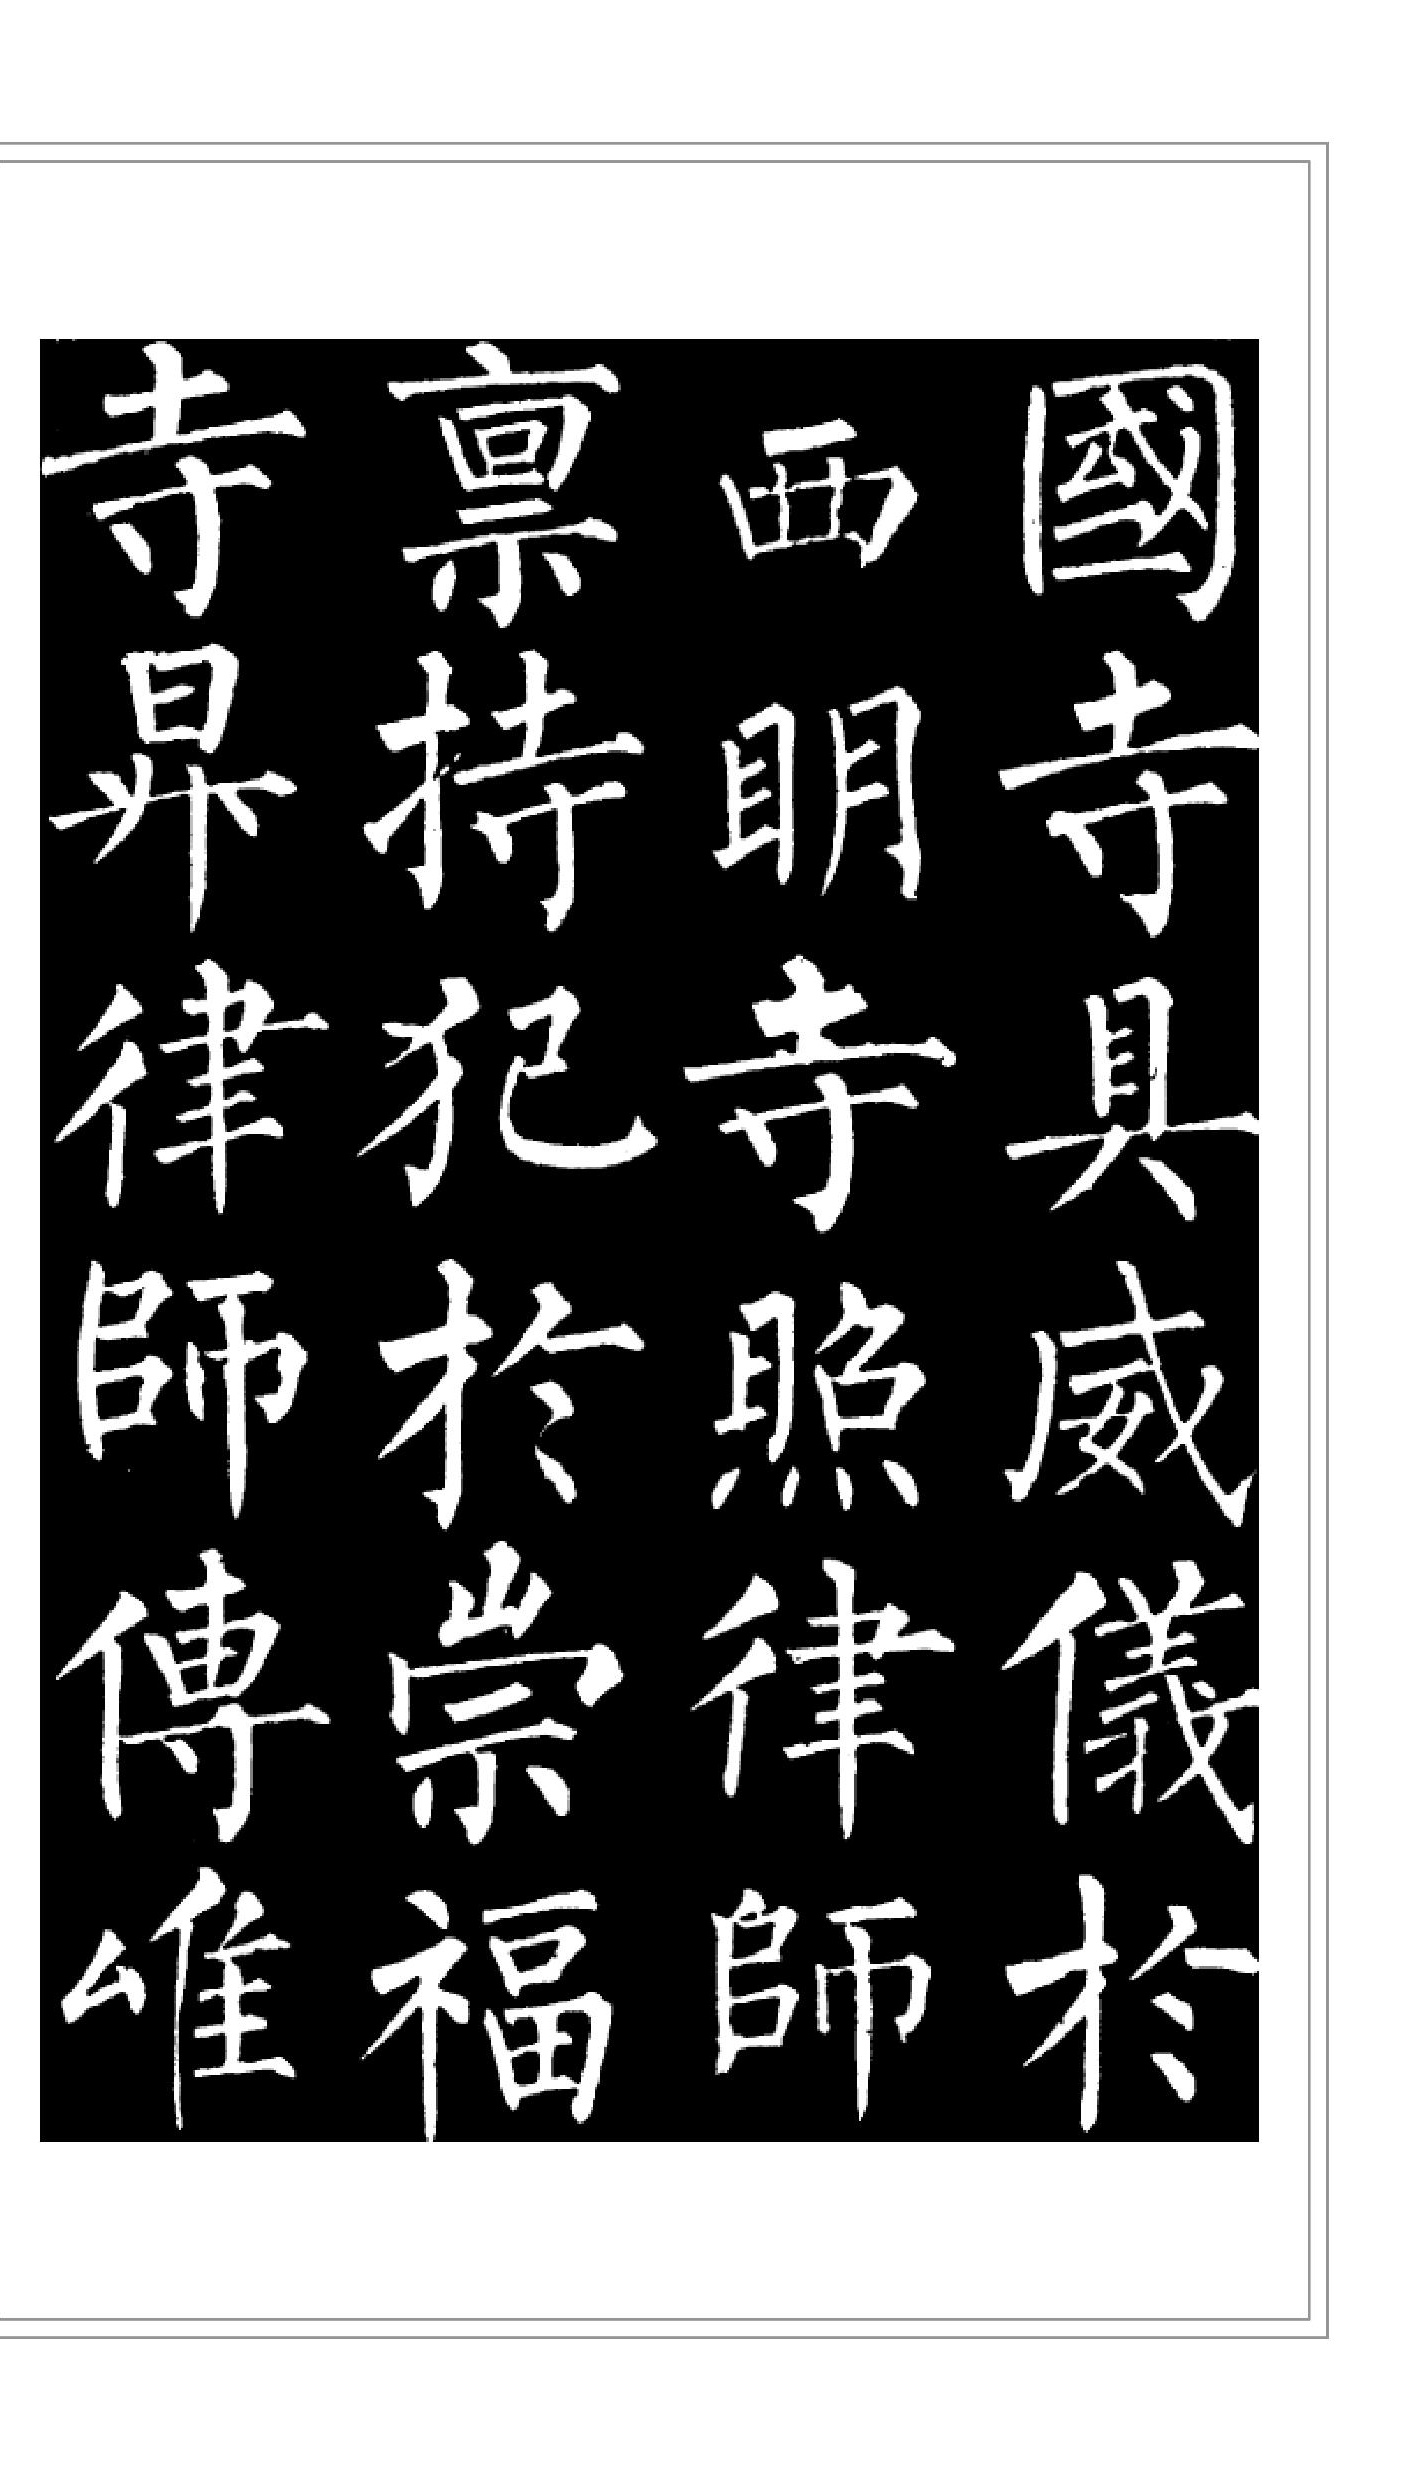 國寺具威儀於
西眀寺照律師
禀持犯於崇福
寺昇律師傳唯